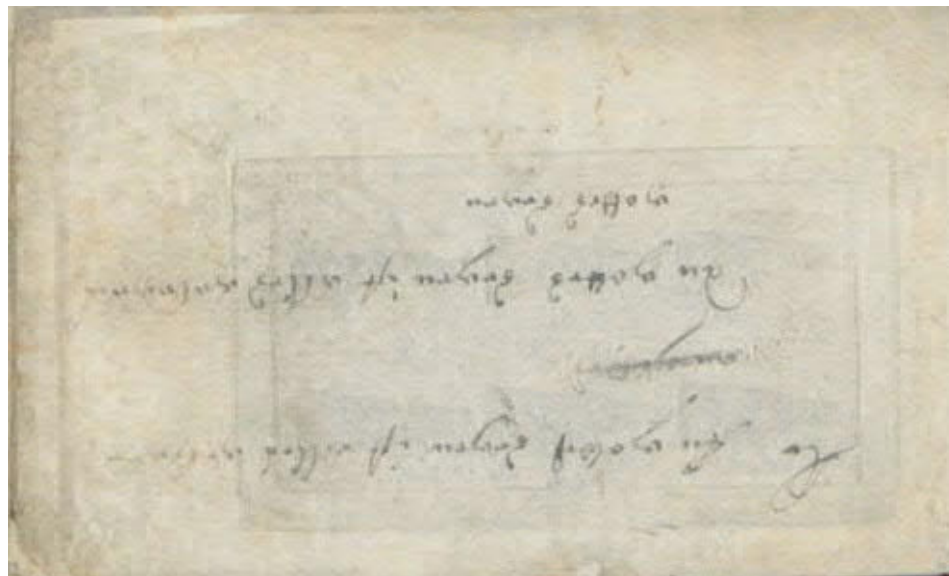 An gottes segen ist alles gelegen
An gottes segen ist alles gelegen
gottes segen